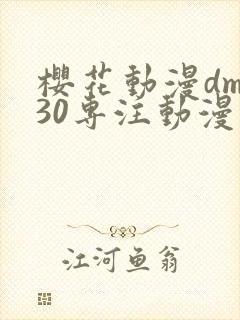 櫻花動漫dm
30專注動漫
江河鱼翁